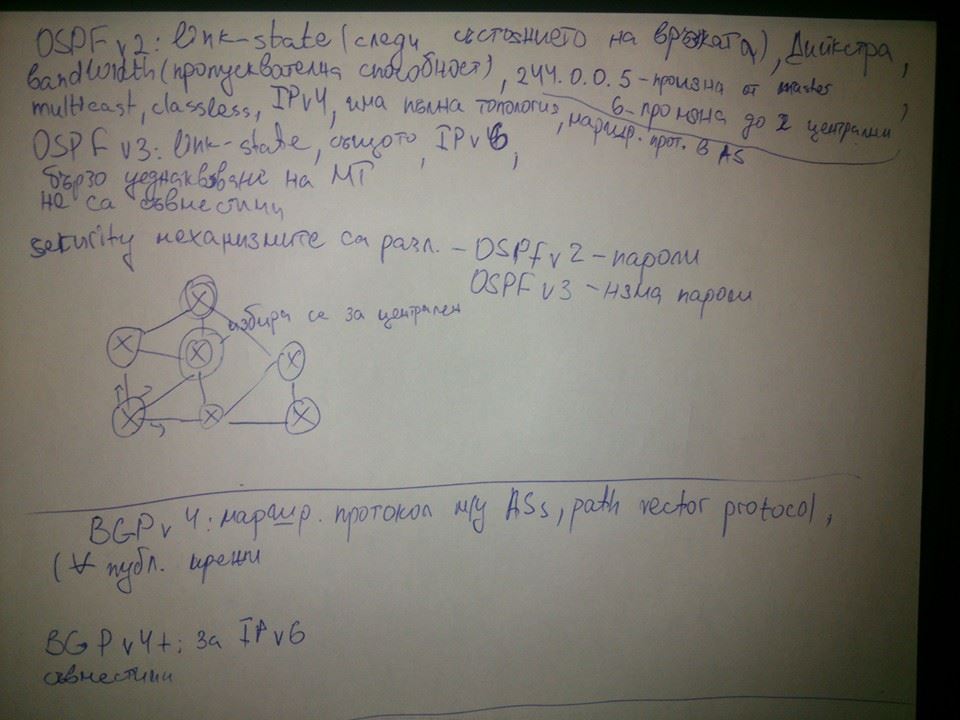 OSPFv2: link-state (следи състоянието на връзката), Дийкстра,
bandwidth (пропусквателна способност), 244.0.0.5 - промяна от master
multicast, classless, IPv4, има пълна топология, 6 - промяна до 2 централни,
маршр. прот. в AS
OSPFv3: link-state, същото, IPv6,
бързо уеднаквяване на МТ
не са съвместими
security механизмите са разл. - OSPFv2 - пароли
OSPFv3 - няма пароли
избира се за централен
BGPv4: маршр. протокол м/у ASs, path vector protocol,
(∀ публ. мрежи
BGPv4+: за IPv6
съвместими